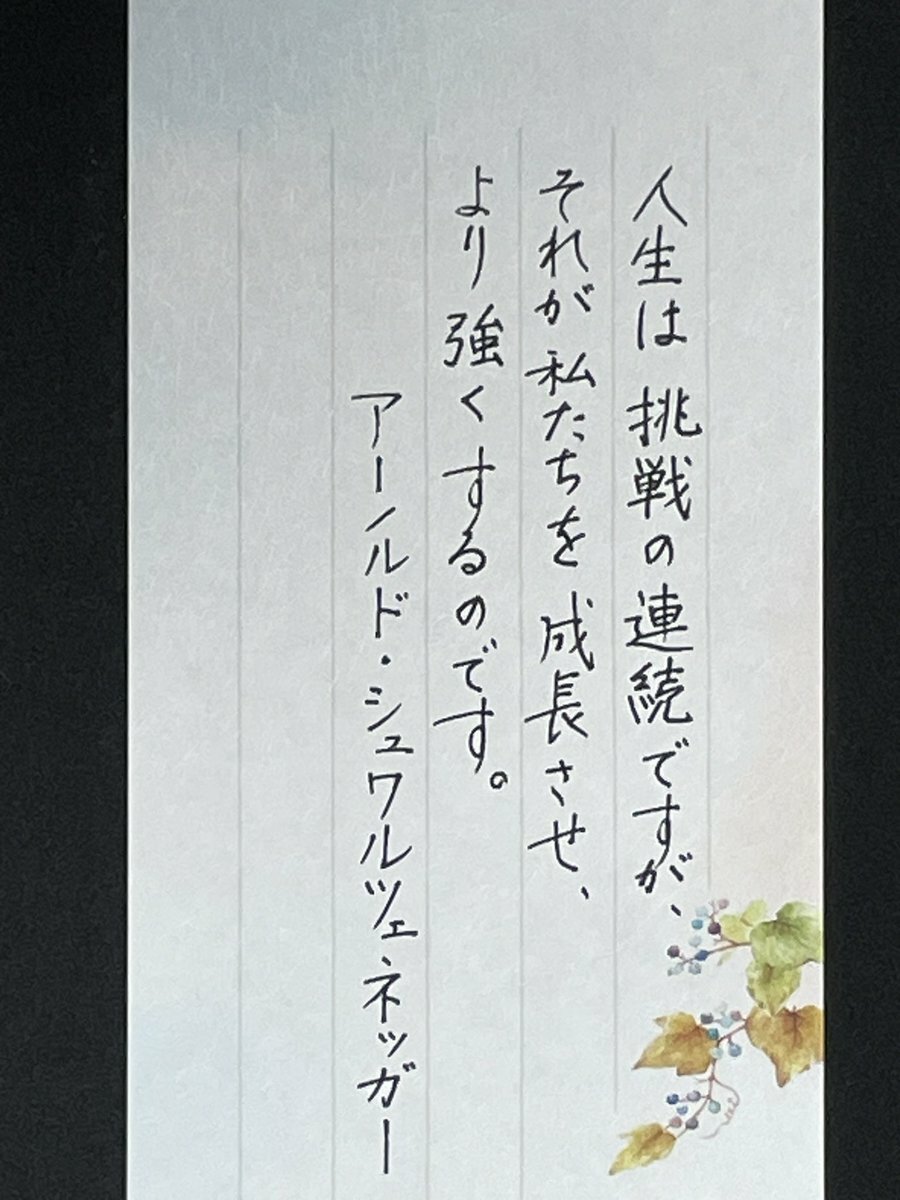 人生は挑戦の連続ですが、
それが私たちを成長させ、
より強くするのです。
アーノルド・シュワルツェネッガー